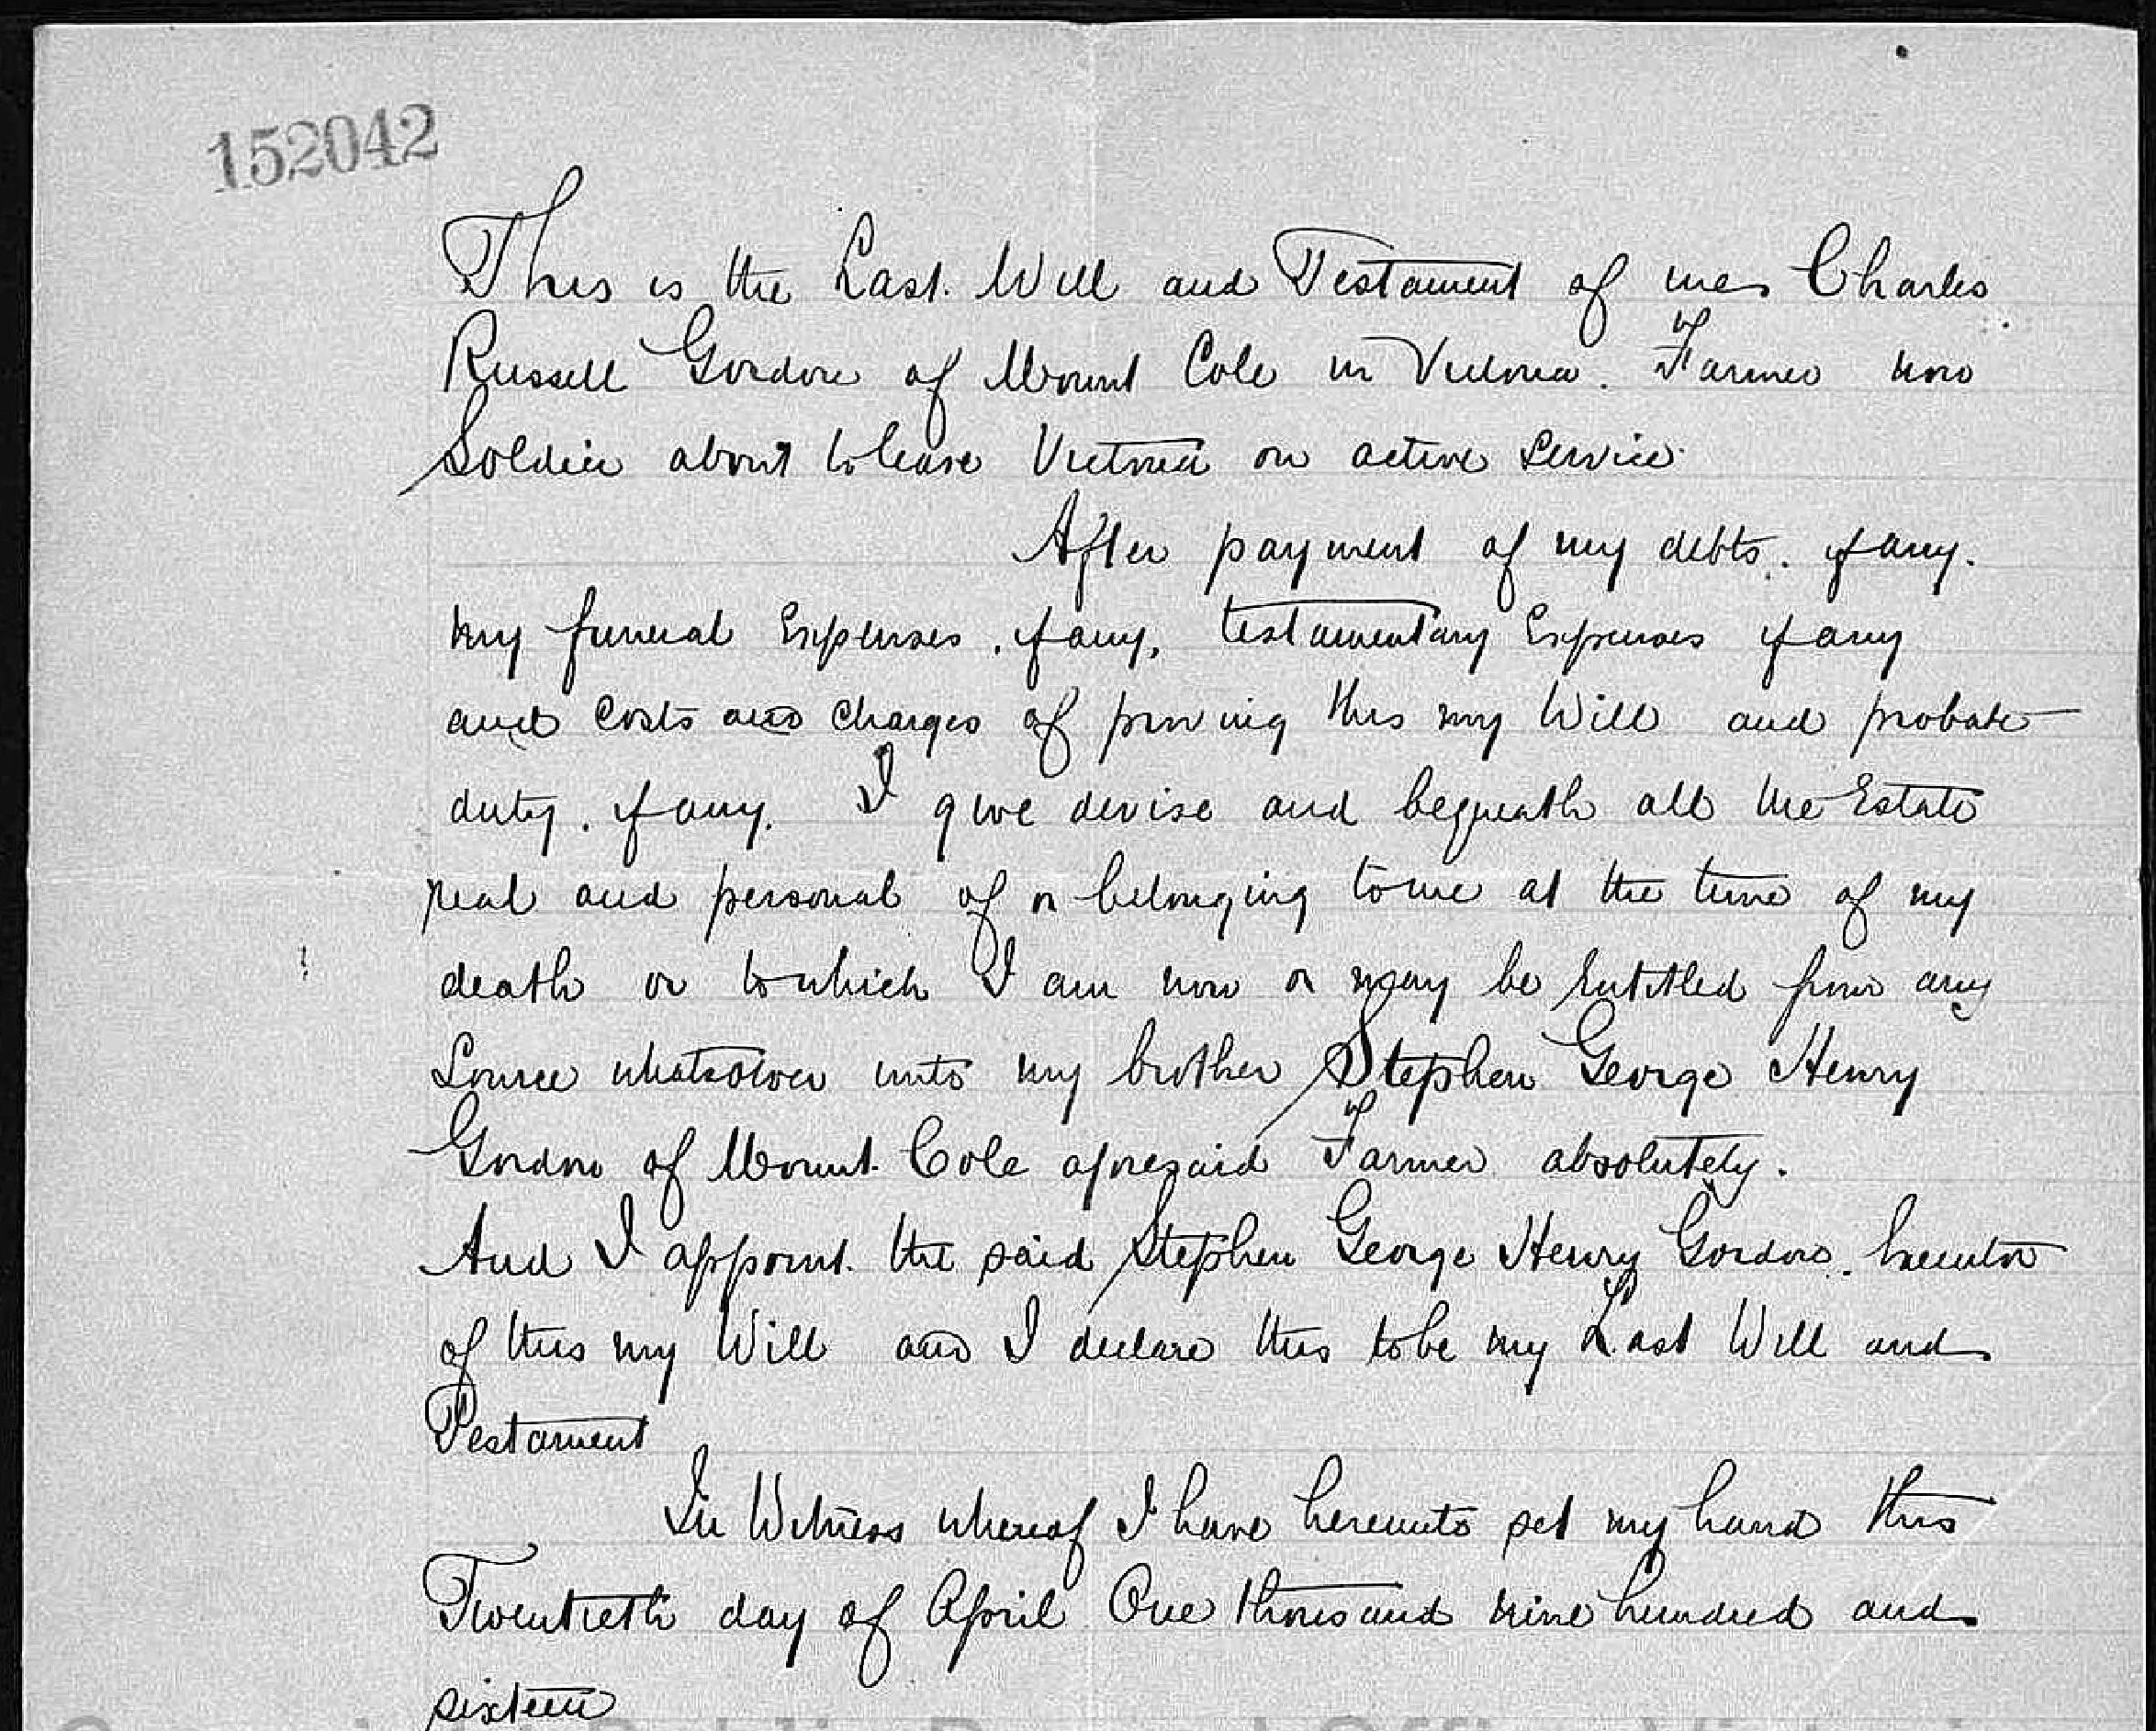 152042
This is the Last. Will and Testament of me Charles
Russell Gordon of Mount Cole in Victoria. Farmer now
Soldier about to leave Victoria on active service.
After payment of my debts. if any.
my funeral Expenses, if any, testamentary Expenses if any
and Costs and Charges of proving this my Will and probate
duty. if any. I give devise and bequeath all the Estate
real and personal of or belonging to me at the time of my
death or to which I am now or may be Entitled from any
Source whatsoever unto my brother Stephen George Henry
Gordon of Mount Cole aforesaid Farmer absolutely.
And I appoint the said Stephen George Henry Gordon. Executor
of this my Will and I declare this to be my Last Will and
Testament
In Witness whereof I have hereunto set my hand this
Twentieth day of April One thousand nine hundred and
sixteen